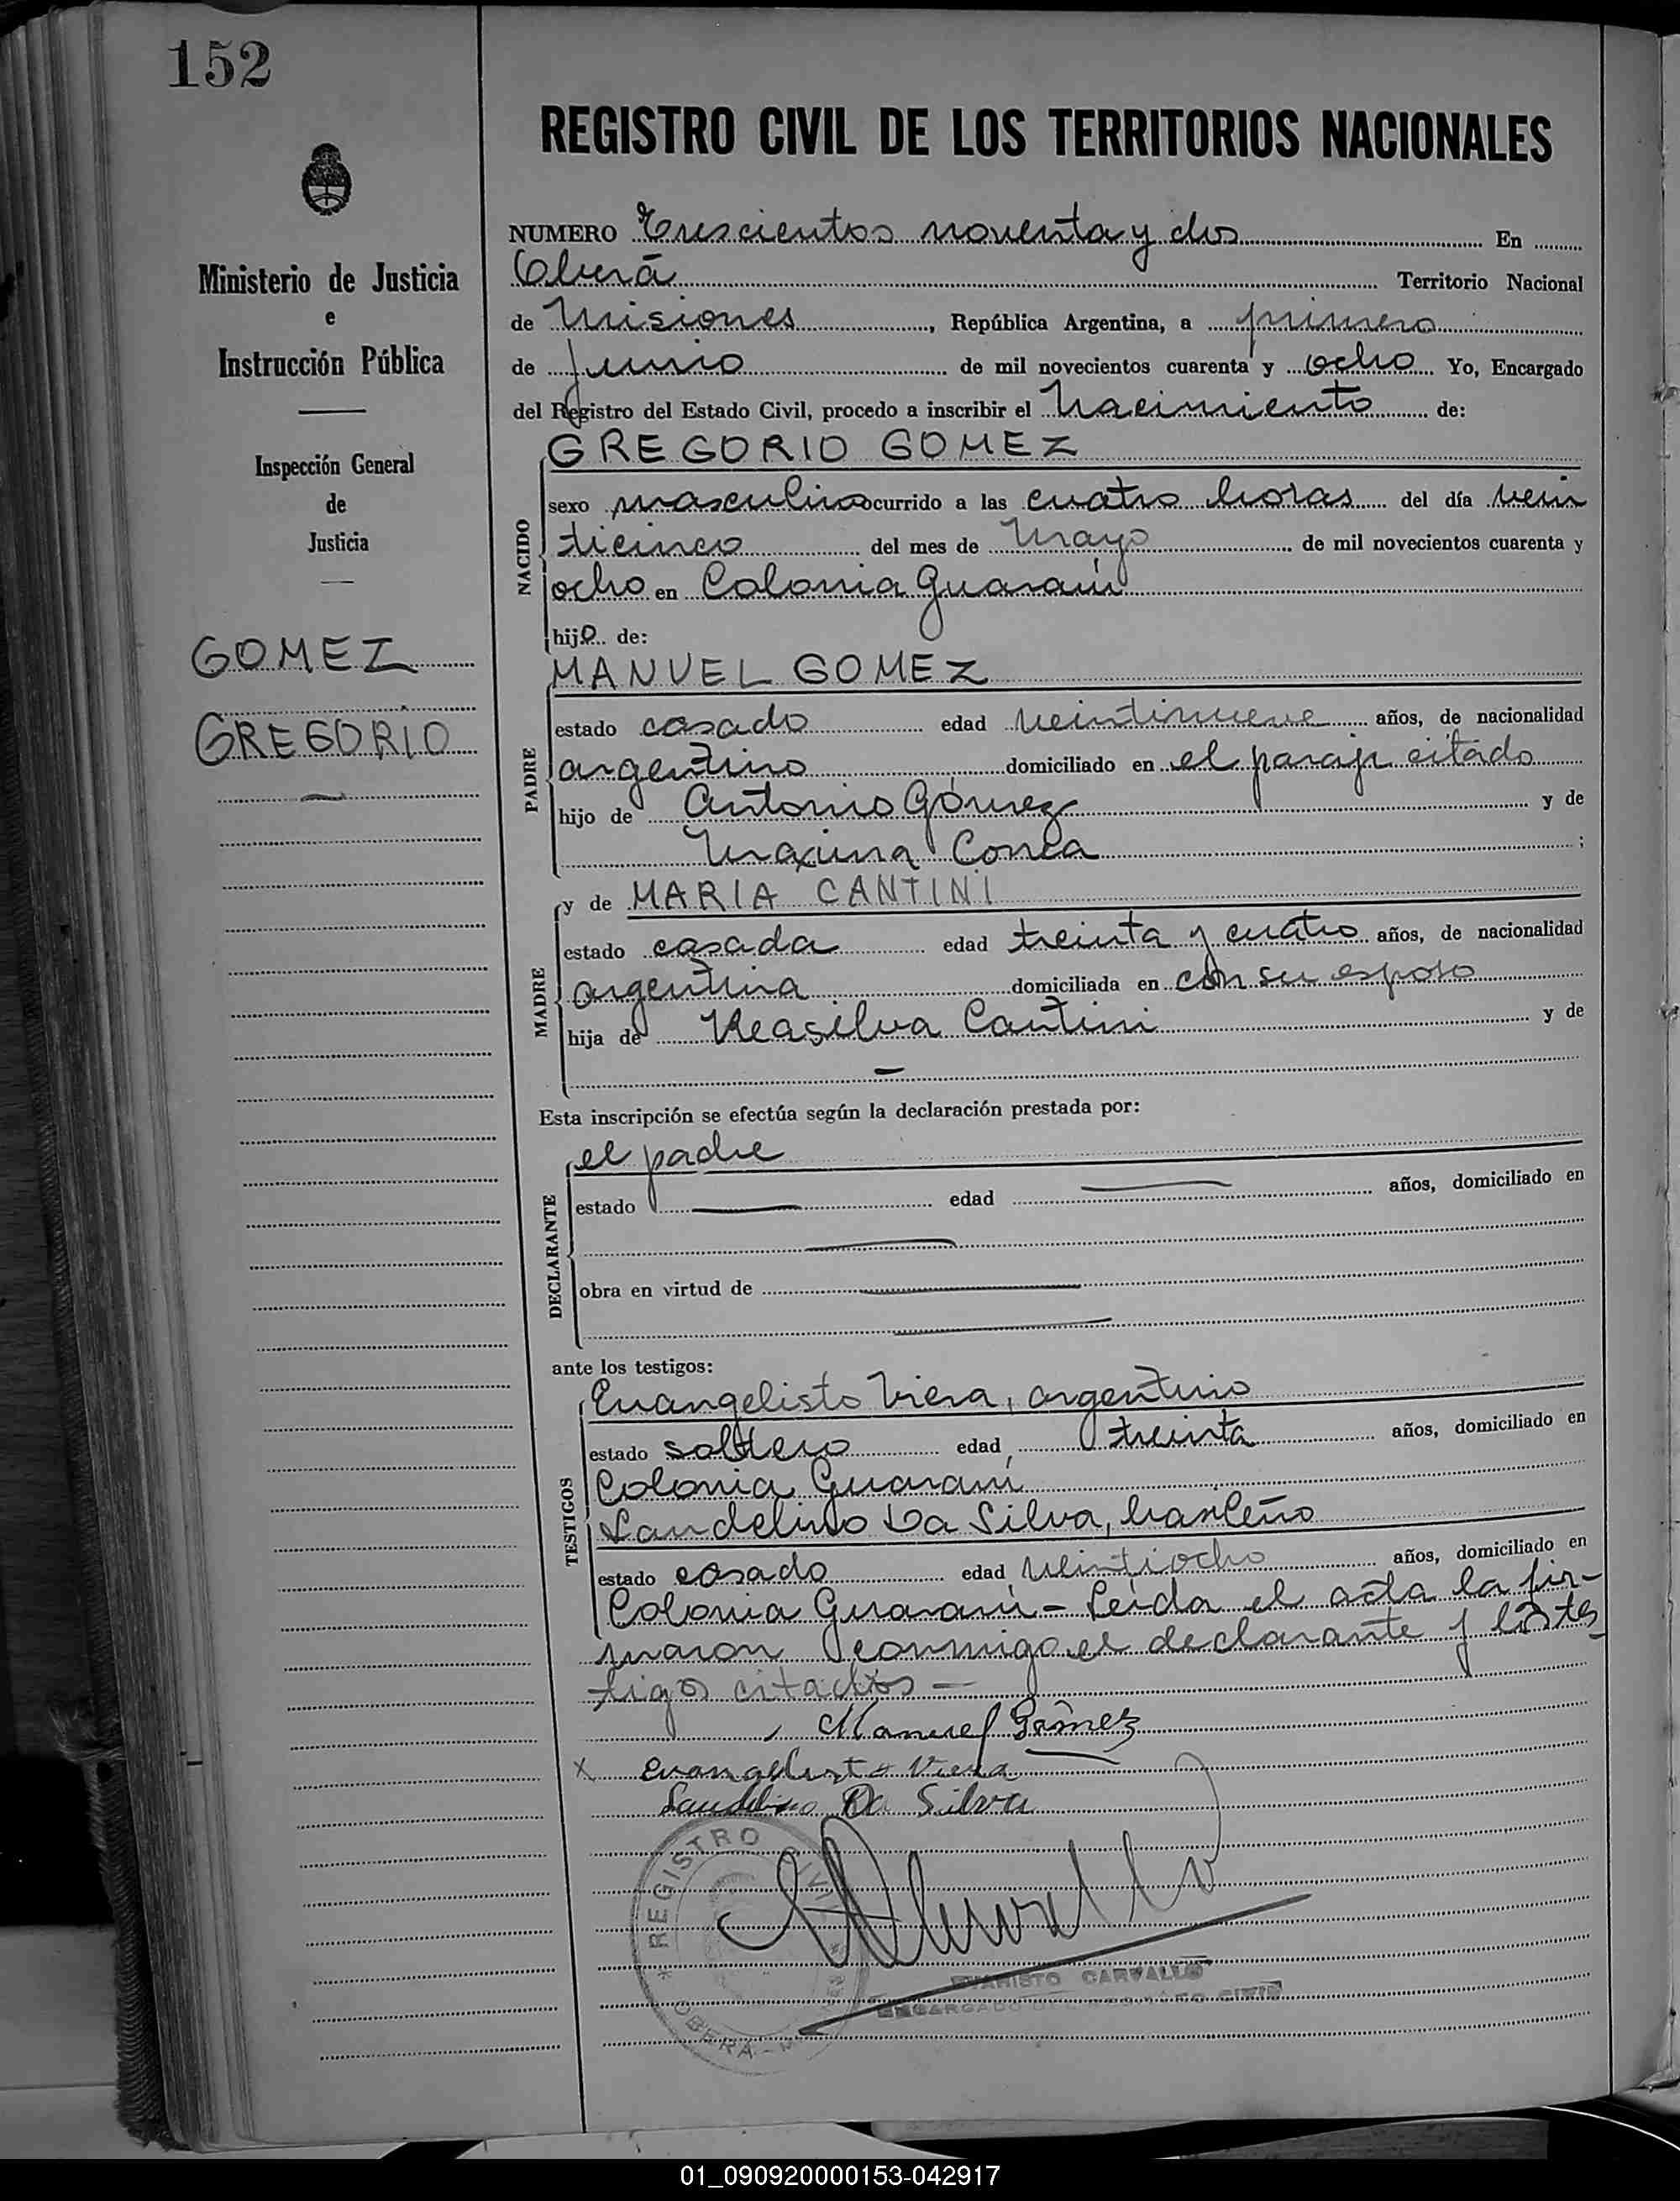 152
REGISTRO CIVIL DE LOS TERRITORIOS NACIONALES
Ministerio de Justicia
e
Instrucción Pública
Inspección General
de
Justicia
GOMEZ
GREGORIO
NUMERO Trescientos noventa y dos En
Oberá Territorio Nacional
de Misiones, República Argentina, a primero
de Junio de mil novecientos cuarenta y ocho Yo, Encargado
del Registro del Estado Civil, procedo a inscribir el Nacimiento de:
GREGORIO GOMEZ
NACIDO
sexo masculino ocurrido a las cuatro horas del día vein
ticinco del mes de Mayo de mil novecientos cuarenta y
ocho en Colonia Guaraní
hijo de:
MANUEL GOMEZ
PADRE
estado casado edad veintinueve años, de nacionalidad
argentino domiciliado en el paraje citado
hijo de Antonio Gómez y de
Maxima Correa;
y de MARIA CANTINI
MADRE
estado casada edad treinta y cuatro años, de nacionalidad
argentina domiciliada en con su esposo
hija de Cantini y de
Esta inscripción se efectúa según la declaración prestada por:
el padre
DECLARANTE
estado edad años, domiciliado en
obra en virtud de
ante los testigos:
TESTIGOS
Evangelisto Viera, argentino
estado soltero edad treinta años, domiciliado en
Colonia Guaraní
Laudelino Da Silva, brasileño
estado casado edad veintiocho años, domiciliado en
Colonia Guaraní - Leída el acta la fir-
maron conmigo el declarante y los tes-
tigos citados -
Manuel Gómez
x Evangelisto Viera
Laudelino Da Silva
REGISTRO CIVIL
OBERA - MISIONES
EVARISTO CARVALLO
ENCARGADO DEL REGISTRO CIVIL
01_090920000153-042917